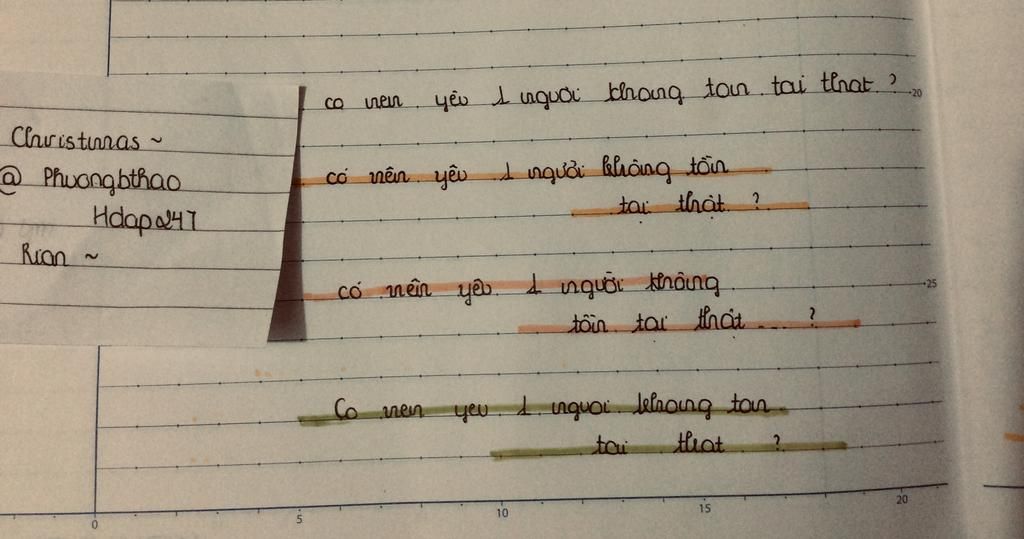 co nen yêu 1 nguoi không ton tai that ?
20
Christmas ~
@ Phuongbthao
Hdapa247
Rian ~
có nên yêu 1 người không tồn
tại thật ?
có nên yêu 1 người không
25
tồn tại thật .... ?
Co nen yeu 1 nguoi khong ton
tai that ?
0 5 10 15 20